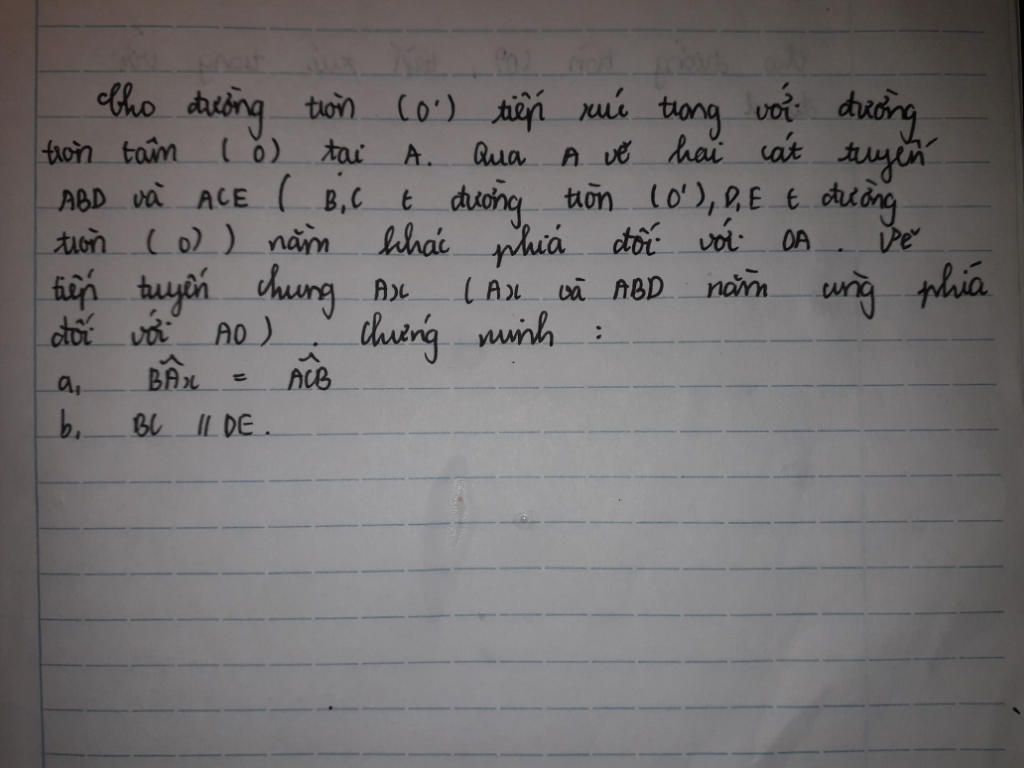 Cho đường tròn (O') tiếp xúc trong với đường
tròn tâm (O) tại A. Qua A vẽ hai cát tuyến
ABD và ACE ( B,C ∈ đường tròn (O'), D,E ∈ đường
tròn (O) ) nằm khác phiá đối với OA . Vẽ
tiếp tuyến chung Ax ( Ax và ABD nằm cùng phiá
đối với AO ) . Chứng minh :
a, BÂx = AĈB
b, BC // DE .